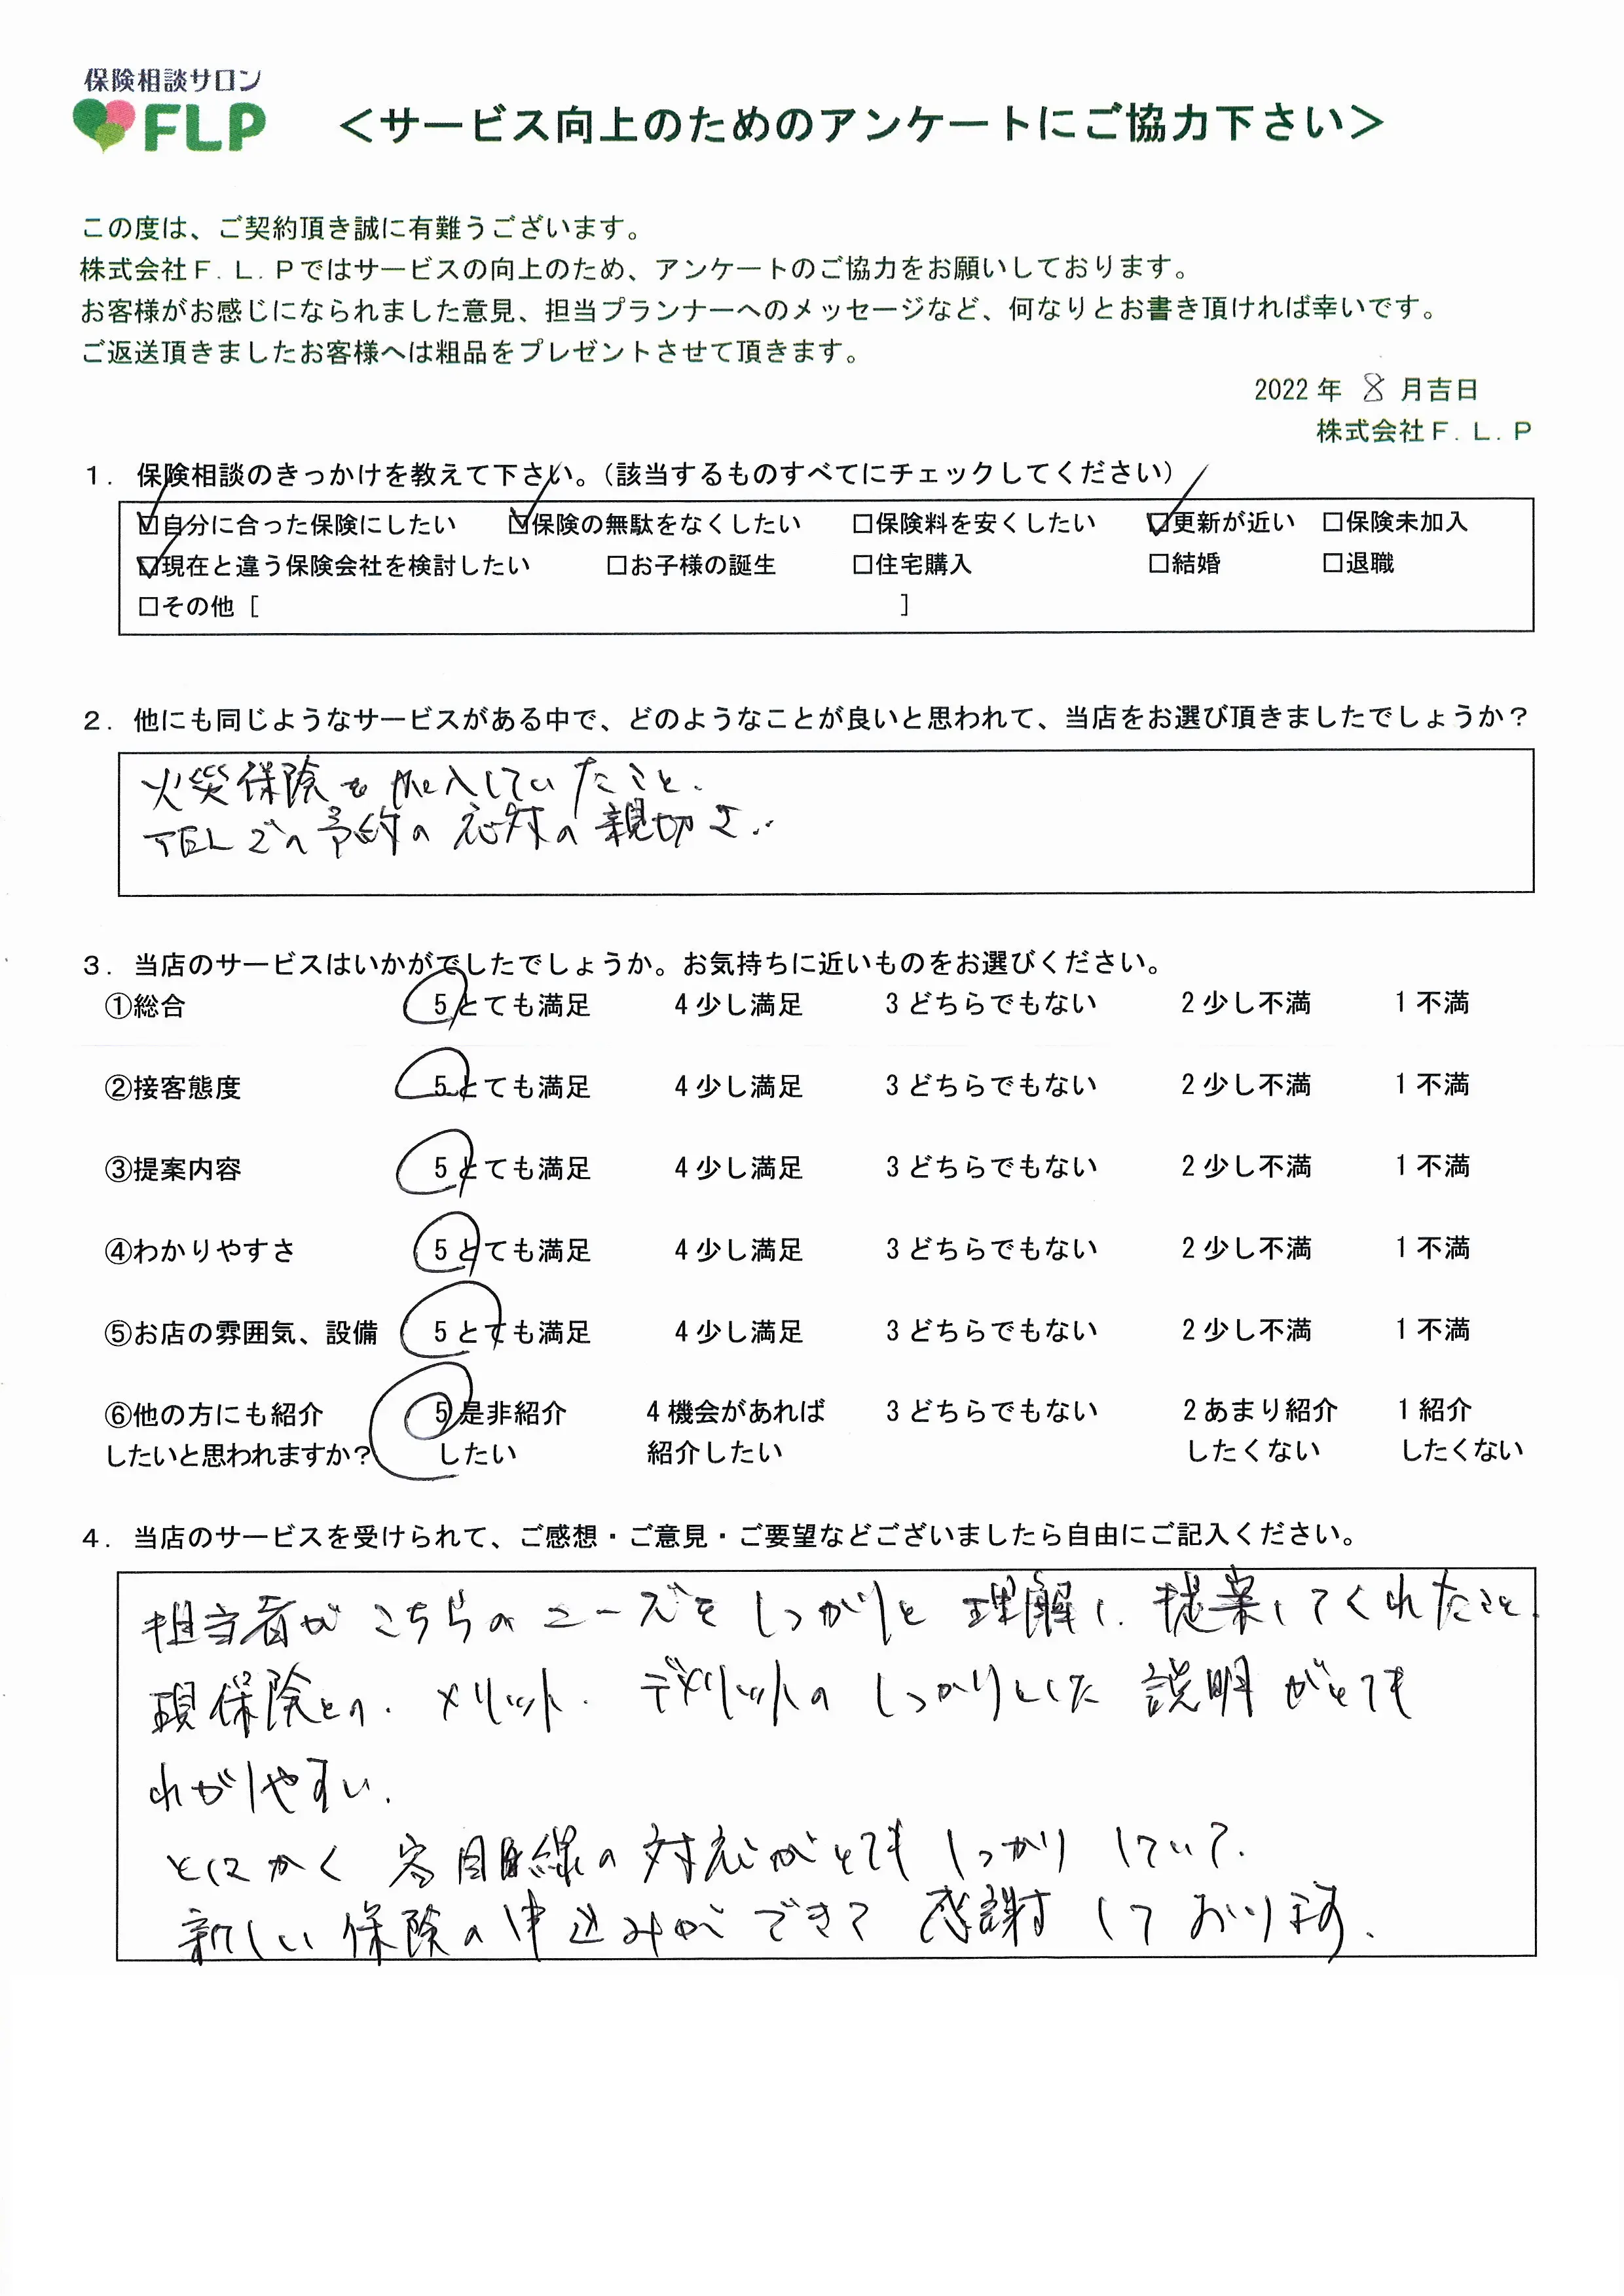 保険相談サロン
FLP
＜サービス向上のためのアンケートにご協力下さい＞
この度は、ご契約頂き誠に有難うございます。
株式会社Ｆ．Ｌ．Ｐではサービスの向上のため、アンケートのご協力をお願いしております。
お客様がお感じになられました意見、担当プランナーへのメッセージなど、何なりとお書き頂ければ幸いです。
ご返送頂きましたお客様へは粗品をプレゼントさせて頂きます。
2022 年 8 月吉日
株式会社Ｆ．Ｌ．Ｐ
１．保険相談のきっかけを教えて下さい。（該当するものすべてにチェックしてください）
☑自分に合った保険にしたい ☑保険の無駄をなくしたい □保険料を安くしたい ☑更新が近い □保険未加入
☑現在と違う保険会社を検討したい □お子様の誕生 □住宅購入 □結婚 □退職
□その他［ ］
２．他にも同じようなサービスがある中で、どのようなことが良いと思われて、当店をお選び頂きましたでしょうか？
火災保険を加入していたこと.
TELでの予約の応対の親切さ..
３．当店のサービスはいかがでしたでしょうか。お気持ちに近いものをお選びください。
①総合 5 とても満足 4 少し満足 3 どちらでもない 2 少し不満 1 不満
②接客態度 5 とても満足 4 少し満足 3 どちらでもない 2 少し不満 1 不満
③提案内容 5 とても満足 4 少し満足 3 どちらでもない 2 少し不満 1 不満
④わかりやすさ 5 とても満足 4 少し満足 3 どちらでもない 2 少し不満 1 不満
⑤お店の雰囲気、設備 5 とても満足 4 少し満足 3 どちらでもない 2 少し不満 1 不満
⑥他の方にも紹介 5 是非紹介 4 機会があれば 3 どちらでもない 2 あまり紹介 1 紹介
したいと思われますか？ したい 紹介したい したくない したくない
４．当店のサービスを受けられて、ご感想・ご意見・ご要望などございましたら自由にご記入ください。
担当者がこちらのニーズをしっかりと理解し.提案してくれたこと.
現保険との.メリット.デメリットのしっかりとした説明がとても
わかりやすい.
とにかく客目線の対応がとてもしっかりしていて.
新しい保険の申込みができて感謝しております.